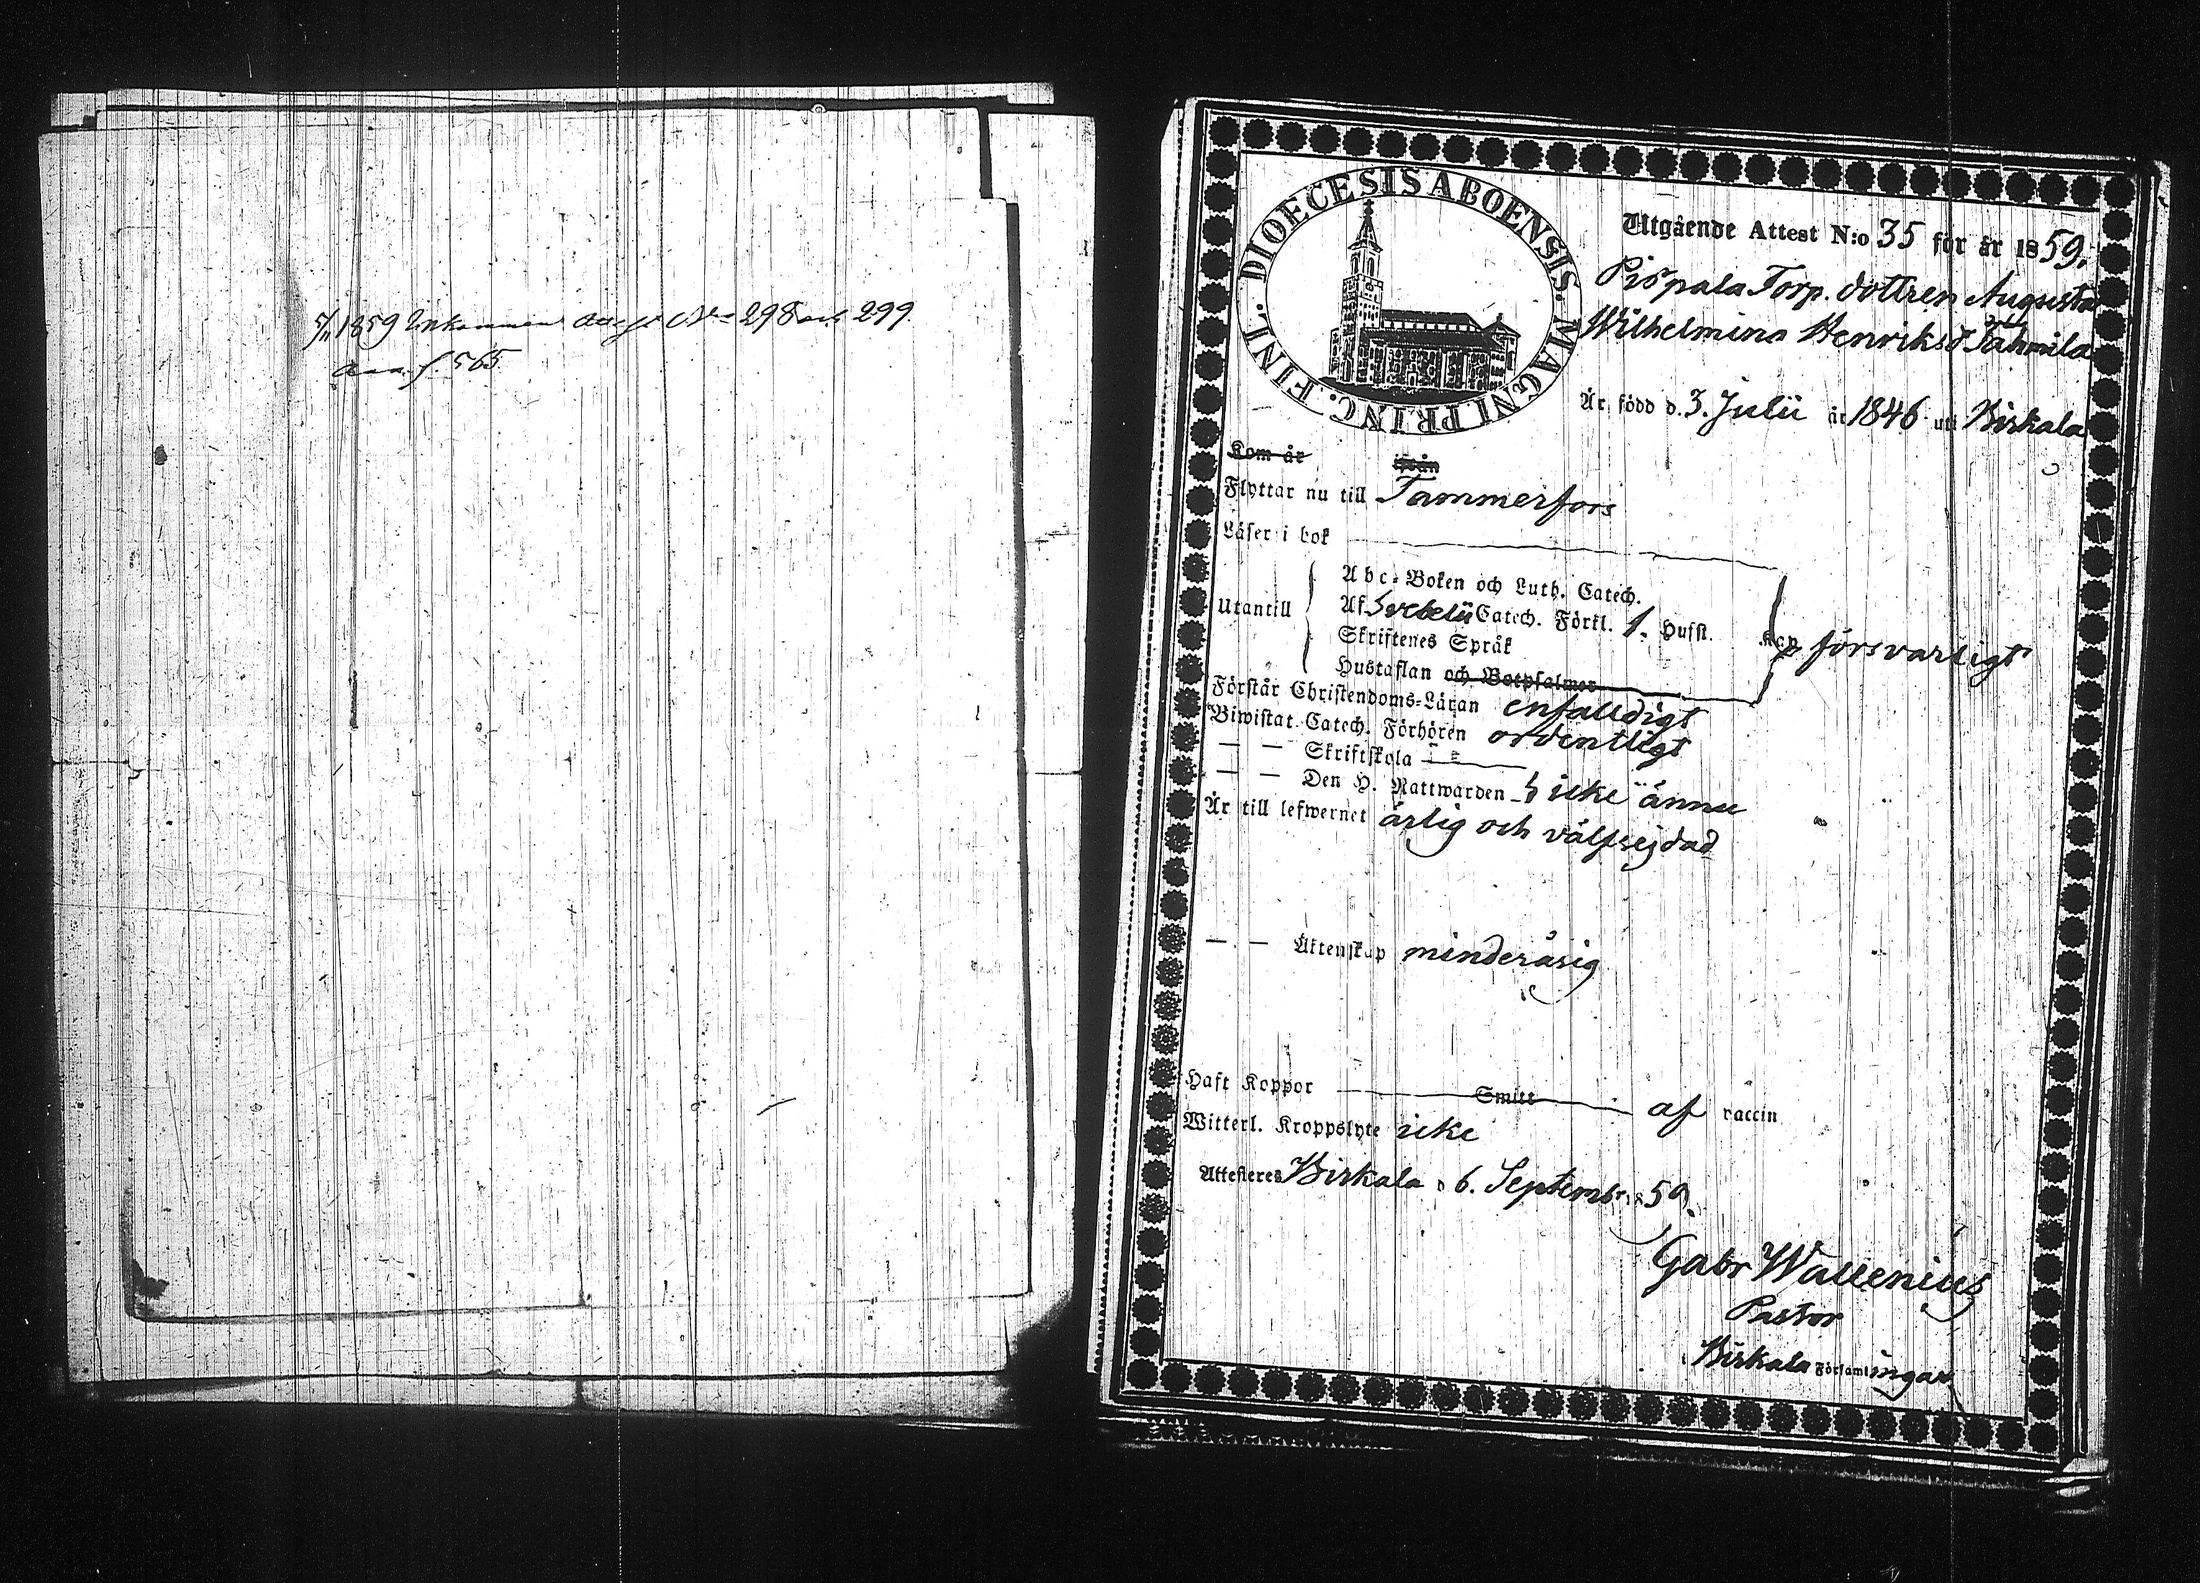 5/11 1859 Inkommen attest No 298 och 299
f. 565
DIOECESIS ABOENSIS. MAGNI PRINC. FINL.
Utgående Attest N:o 35 för år 1859.
Pispala Torp. dottren Augusta
Wilhelmina Henriksd Tahmila
Är född d. 3. Julii år 1846 uti Birkala
Kom år ifrån
Flyttar nu till Tammerfors
Läser i bok
Abc-Boken och Luth. Catech.
Utantill
Af Svebelii Catech. Förkl. 1. Hufst. Kap försvarligt
Skriftenes Språk
Hustaflan och Botpsalmer
Förstår Christendoms-Läran enfalldigt
Biwistat Catech. Förhören ordentligt
— — Skriftskola
— — Den H. Nattwarden icke ännu
Är till lefwernet ärlig och välfrejdad
— — Äktenskap minderårig
Haft Koppor Smitt af vaccin
Witterl. Kroppslyte icke
Attesteres Birkala d 6. Septembr. 1859.
Gabr Wallenius
Pastor
i Birkala Församlingar